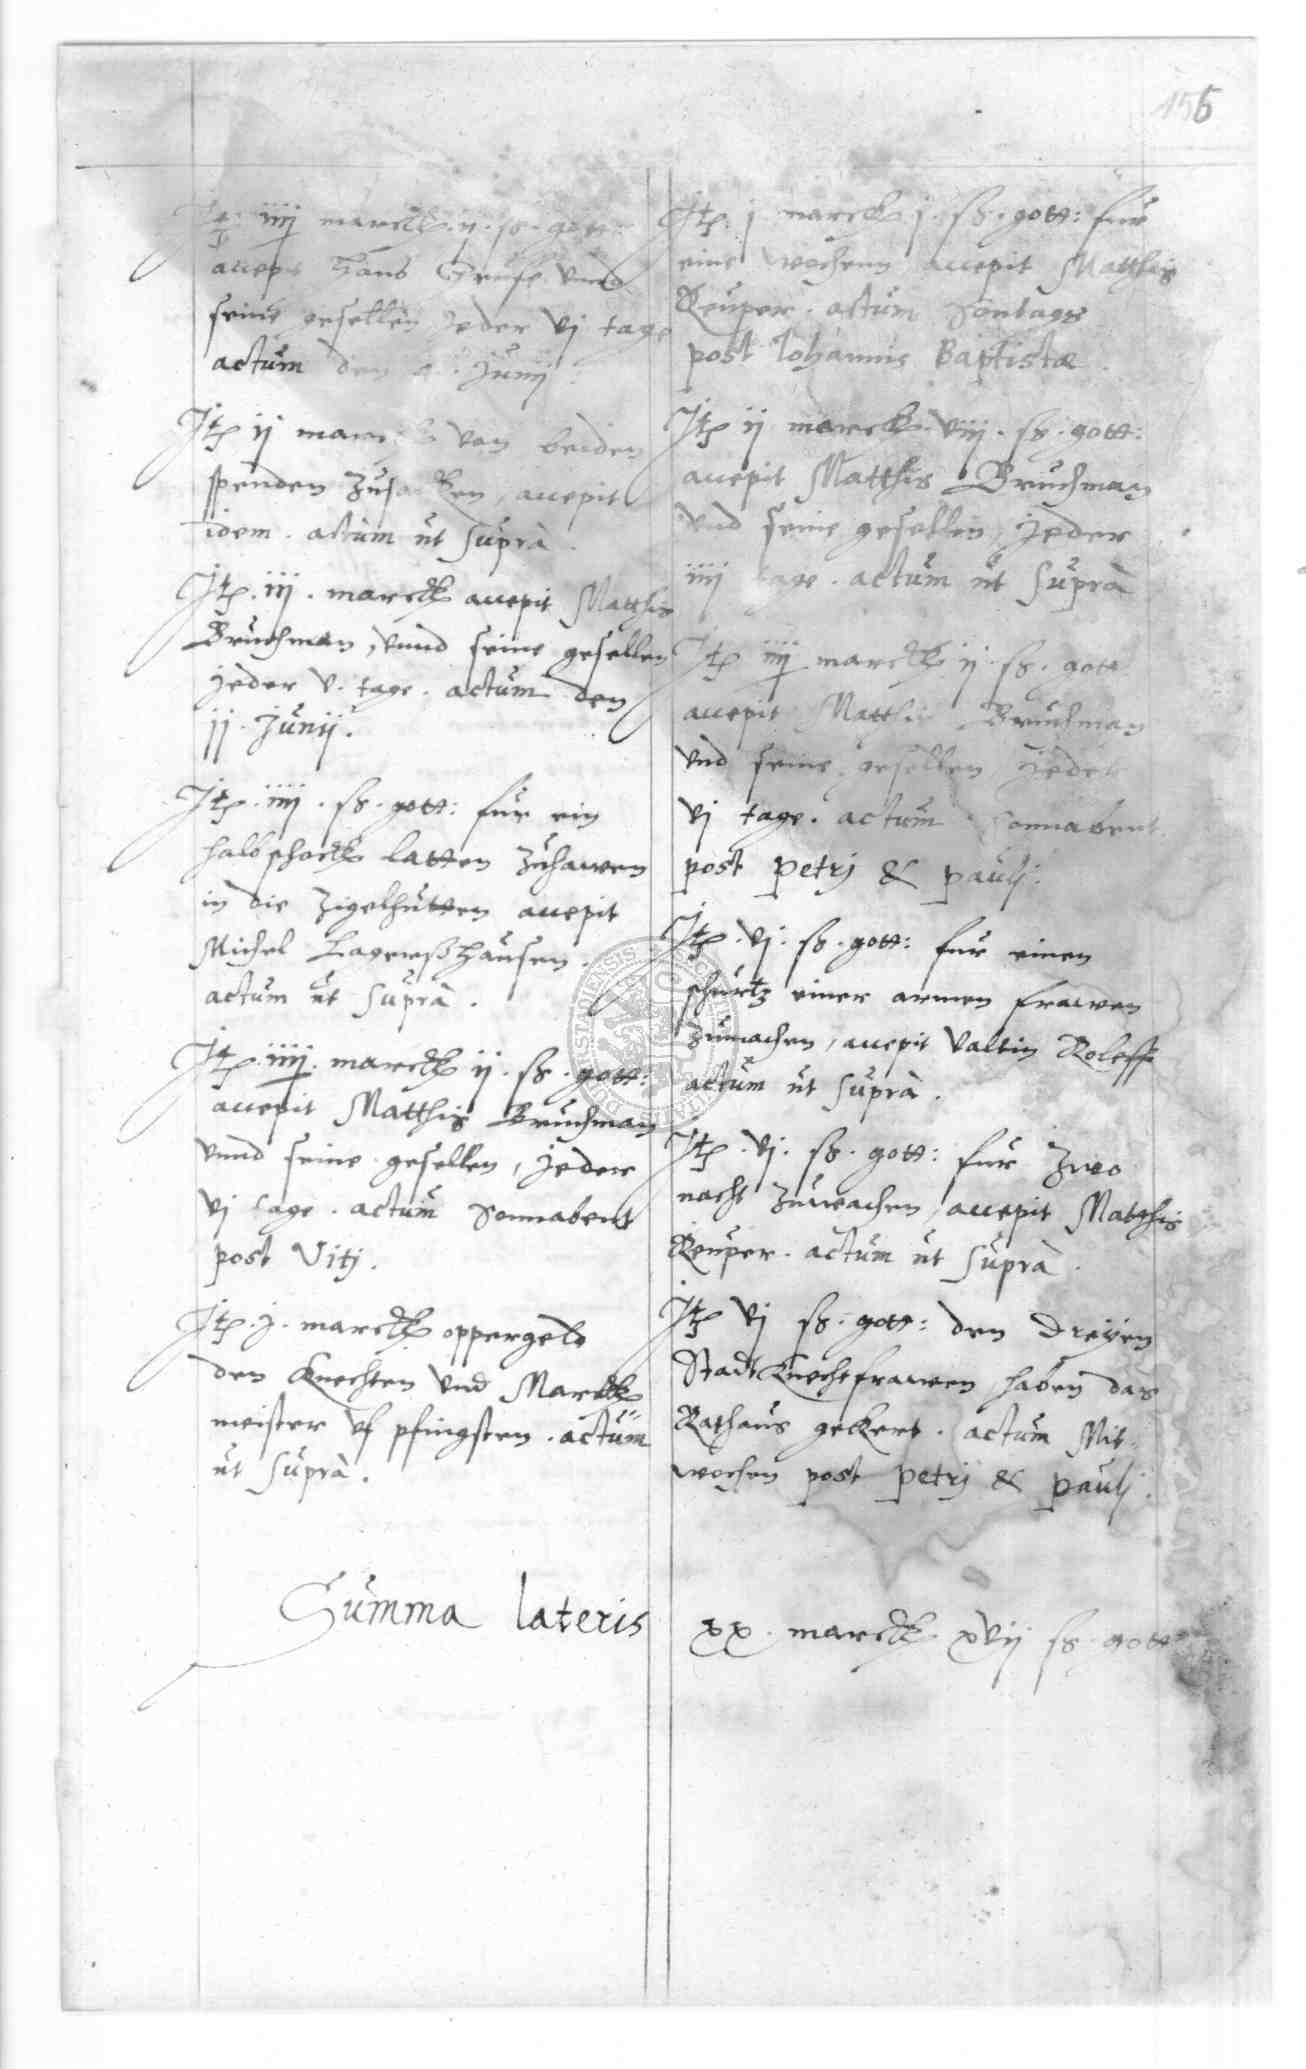 156
Itꝫ iiij marck ij ß gott:
accepit Hans Gruse unnd
seine gesellen jeder vj tage
actum den Junij
Itꝫ ij marck von beiden
spenden accepit
idem. actum ut supra.
Itꝫ. iij. marck accepit Matthis
Bruchman, unnd seine gesellen
jeder v. tage. actum den
jj. Junij.
Itꝫ. iiij. ß. gott: fur ein
halb schock latten zuhawen
in die zigelhutten accepit
Michel Lagerßhausen.
actum ut supra.
Itꝫ. iiij. marck ij. ß. gott:
accepit Matthis Bruchman
unnd seine gesellen, jeder
vj tage. actum Sonnabent
post Vitj.
Itꝫ. j. marck oppergelt
den Knechten und Marck
meister uf pfingsten. actum
ut supra.
Itꝫ. j marck j. ß. gott: fur
eine wochenn accepit Matthis
Reuper. actum Sontags
post Johannis Baptistae.
Itꝫ ij marck. viij. ß. gott:
accepit Matthis Bruchman
und seine gesellen, jeder
iiij tage. actum ut supra
Itꝫ iiij marck ij. ß. gott
accepit Matthis Bruchman
und seine gesellen jeder
vj tage. actum Sonnabent
post Petrj & Paulj.
Itꝫ. vj. ß. gott: fur einen
schurtz einer armen frawen
zumachen, accepit Valtin Roleff
actum ut supra.
Itꝫ. vj. ß. gott: fur zwo
nacht zuwachen, accepit Matthis
Reuper. actum ut supra.
Itꝫ vj ß. gott: den dreyen
Stadt Knechtfrawen haben das
Rathaus gekert. actum Mit-
wochen post Petrj & Paulj.
Summa lateris xx. marck xvij ß. gott